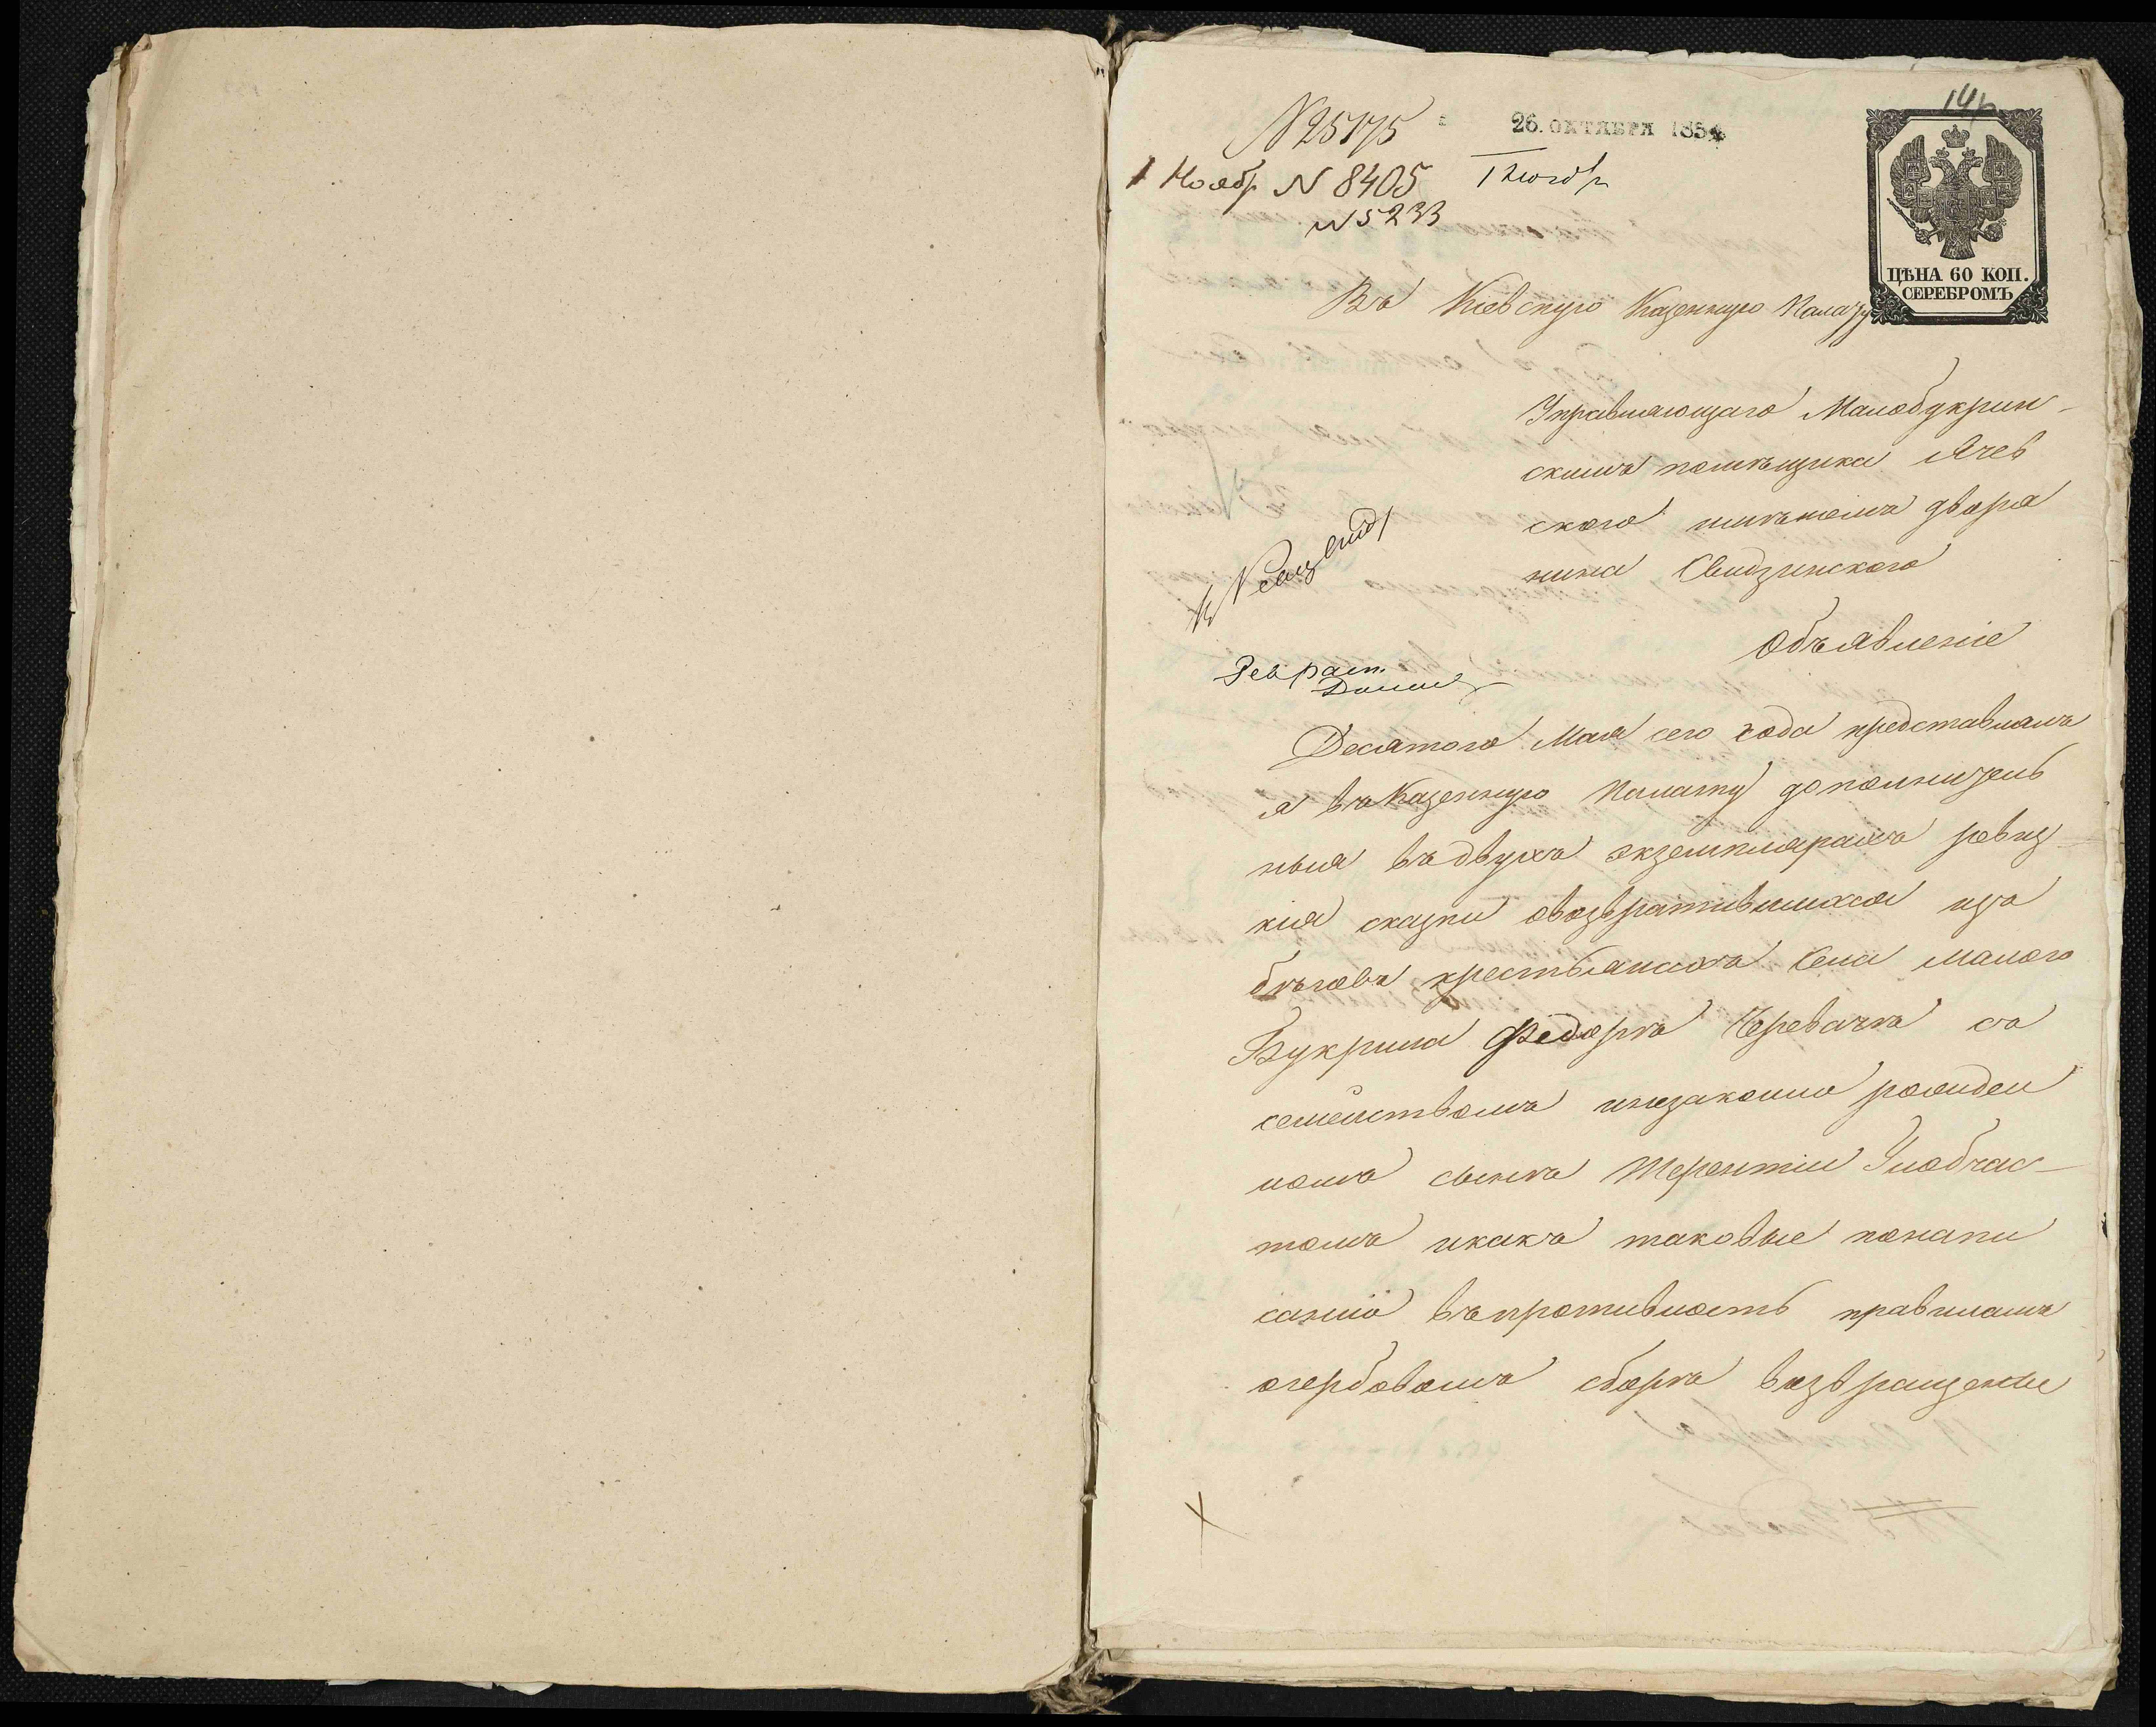 14
№ 25175
26. ОКТЯБРЯ 1854
1 Ноябр № 8405
1 Ноябр
№ 5233
ЦѢНА 60 КОП.
СЕРЕБРОМЪ
Въ Киевскую Казенную Палату
Управляющаго Малобукрин-
скимъ помѣщика Ячев
ского имѣниемъ дворя
нина Свидзинского
Объявленіе
Рев расп.
Десятого Мая сего года представлялъ
я въ Казенную Палату дополнитель
ныя въ двухъ экземплярахъ ревиз
кия сказки овозвратившихся изъ
бѣговъ крестьянахъ Села малого
Букрина Федорѣ Черевачѣ съ
семействомъ инезаконно рожден
номъ сынѣ Терентии
томъ икакъ таковые понапи
санию въпротивность правиламъ
огербовомъ сборѣ возвращены